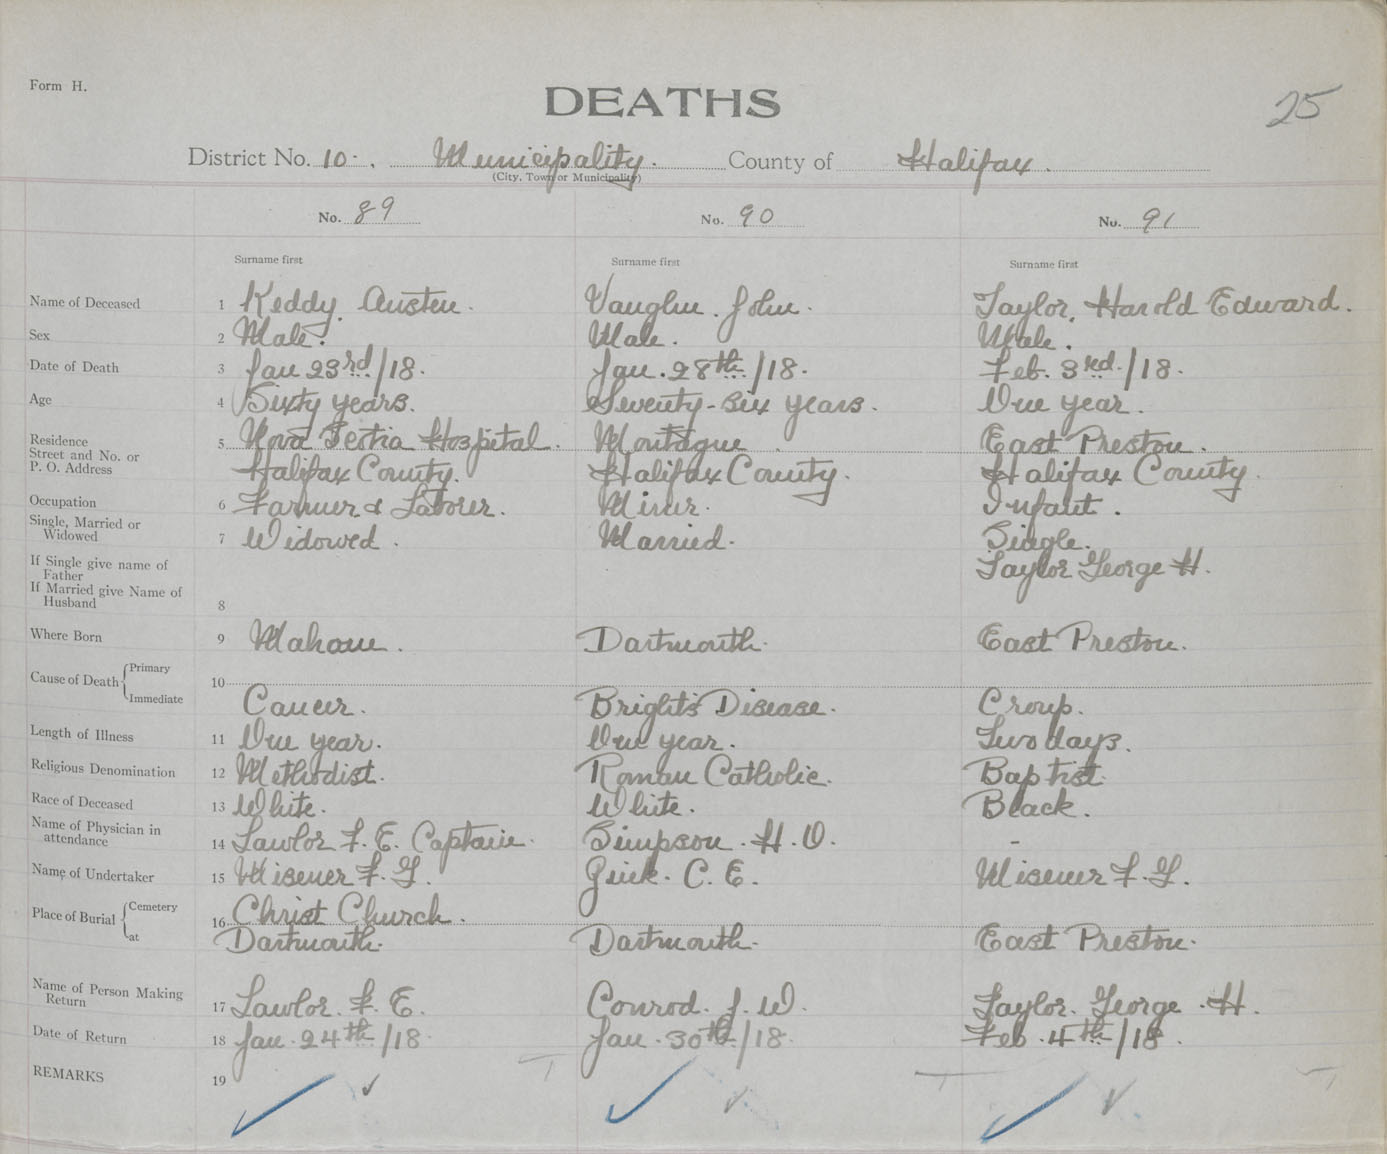 Form H.
DEATHS
25
District No. 10. Municipality. County of Halifax.
(City, Town or Municipality)
No. 89 No. 90 No. 91
Surname first Surname first Surname first
Name of Deceased 1 Keddy, Austen. Vaughn. John. Taylor, Harold Edward.
Sex 2 Male. Male. Male.
Date of Death 3 Jan 23rd/18. Jan. 28th/18. Feb. 3rd./18.
Age 4 Sixty years. Seventy-six years. One year.
Residence Street and No. or P. O. Address 5 Nova Scotia Hospital. Montague. East Preston.
Halifax County. Halifax County. Halifax County.
Occupation 6 Farmer & Laborer. Miner. Infant.
Single, Married or Widowed 7 Widowed. Married. Single.
If Single give name of Father Taylor George H.
If Married give Name of Husband 8
Where Born 9 Mahone. Dartmouth. East Preston.
Cause of Death Primary 10
Immediate Cancer. Bright's Disease. Croup.
Length of Illness 11 One year. One year. Two days.
Religious Denomination 12 Methodist. Roman Catholic. Baptist.
Race of Deceased 13 White. White. Black.
Name of Physician in attendance 14 Lawlor F. E. Captain. Simpson. H. O. -
Name of Undertaker 15 Misener F. G. C. E. Misener F. G.
Place of Burial Cemetery 16 Christ Church.
at Dartmouth. Dartmouth. East Preston.
Name of Person Making Return 17 Lawlor. F. E. Conrod. J. W. Taylor. George. H.
Date of Return 18 Jan. 24th/18. Jan. 30th/18. Feb. 4th/18.
REMARKS 19